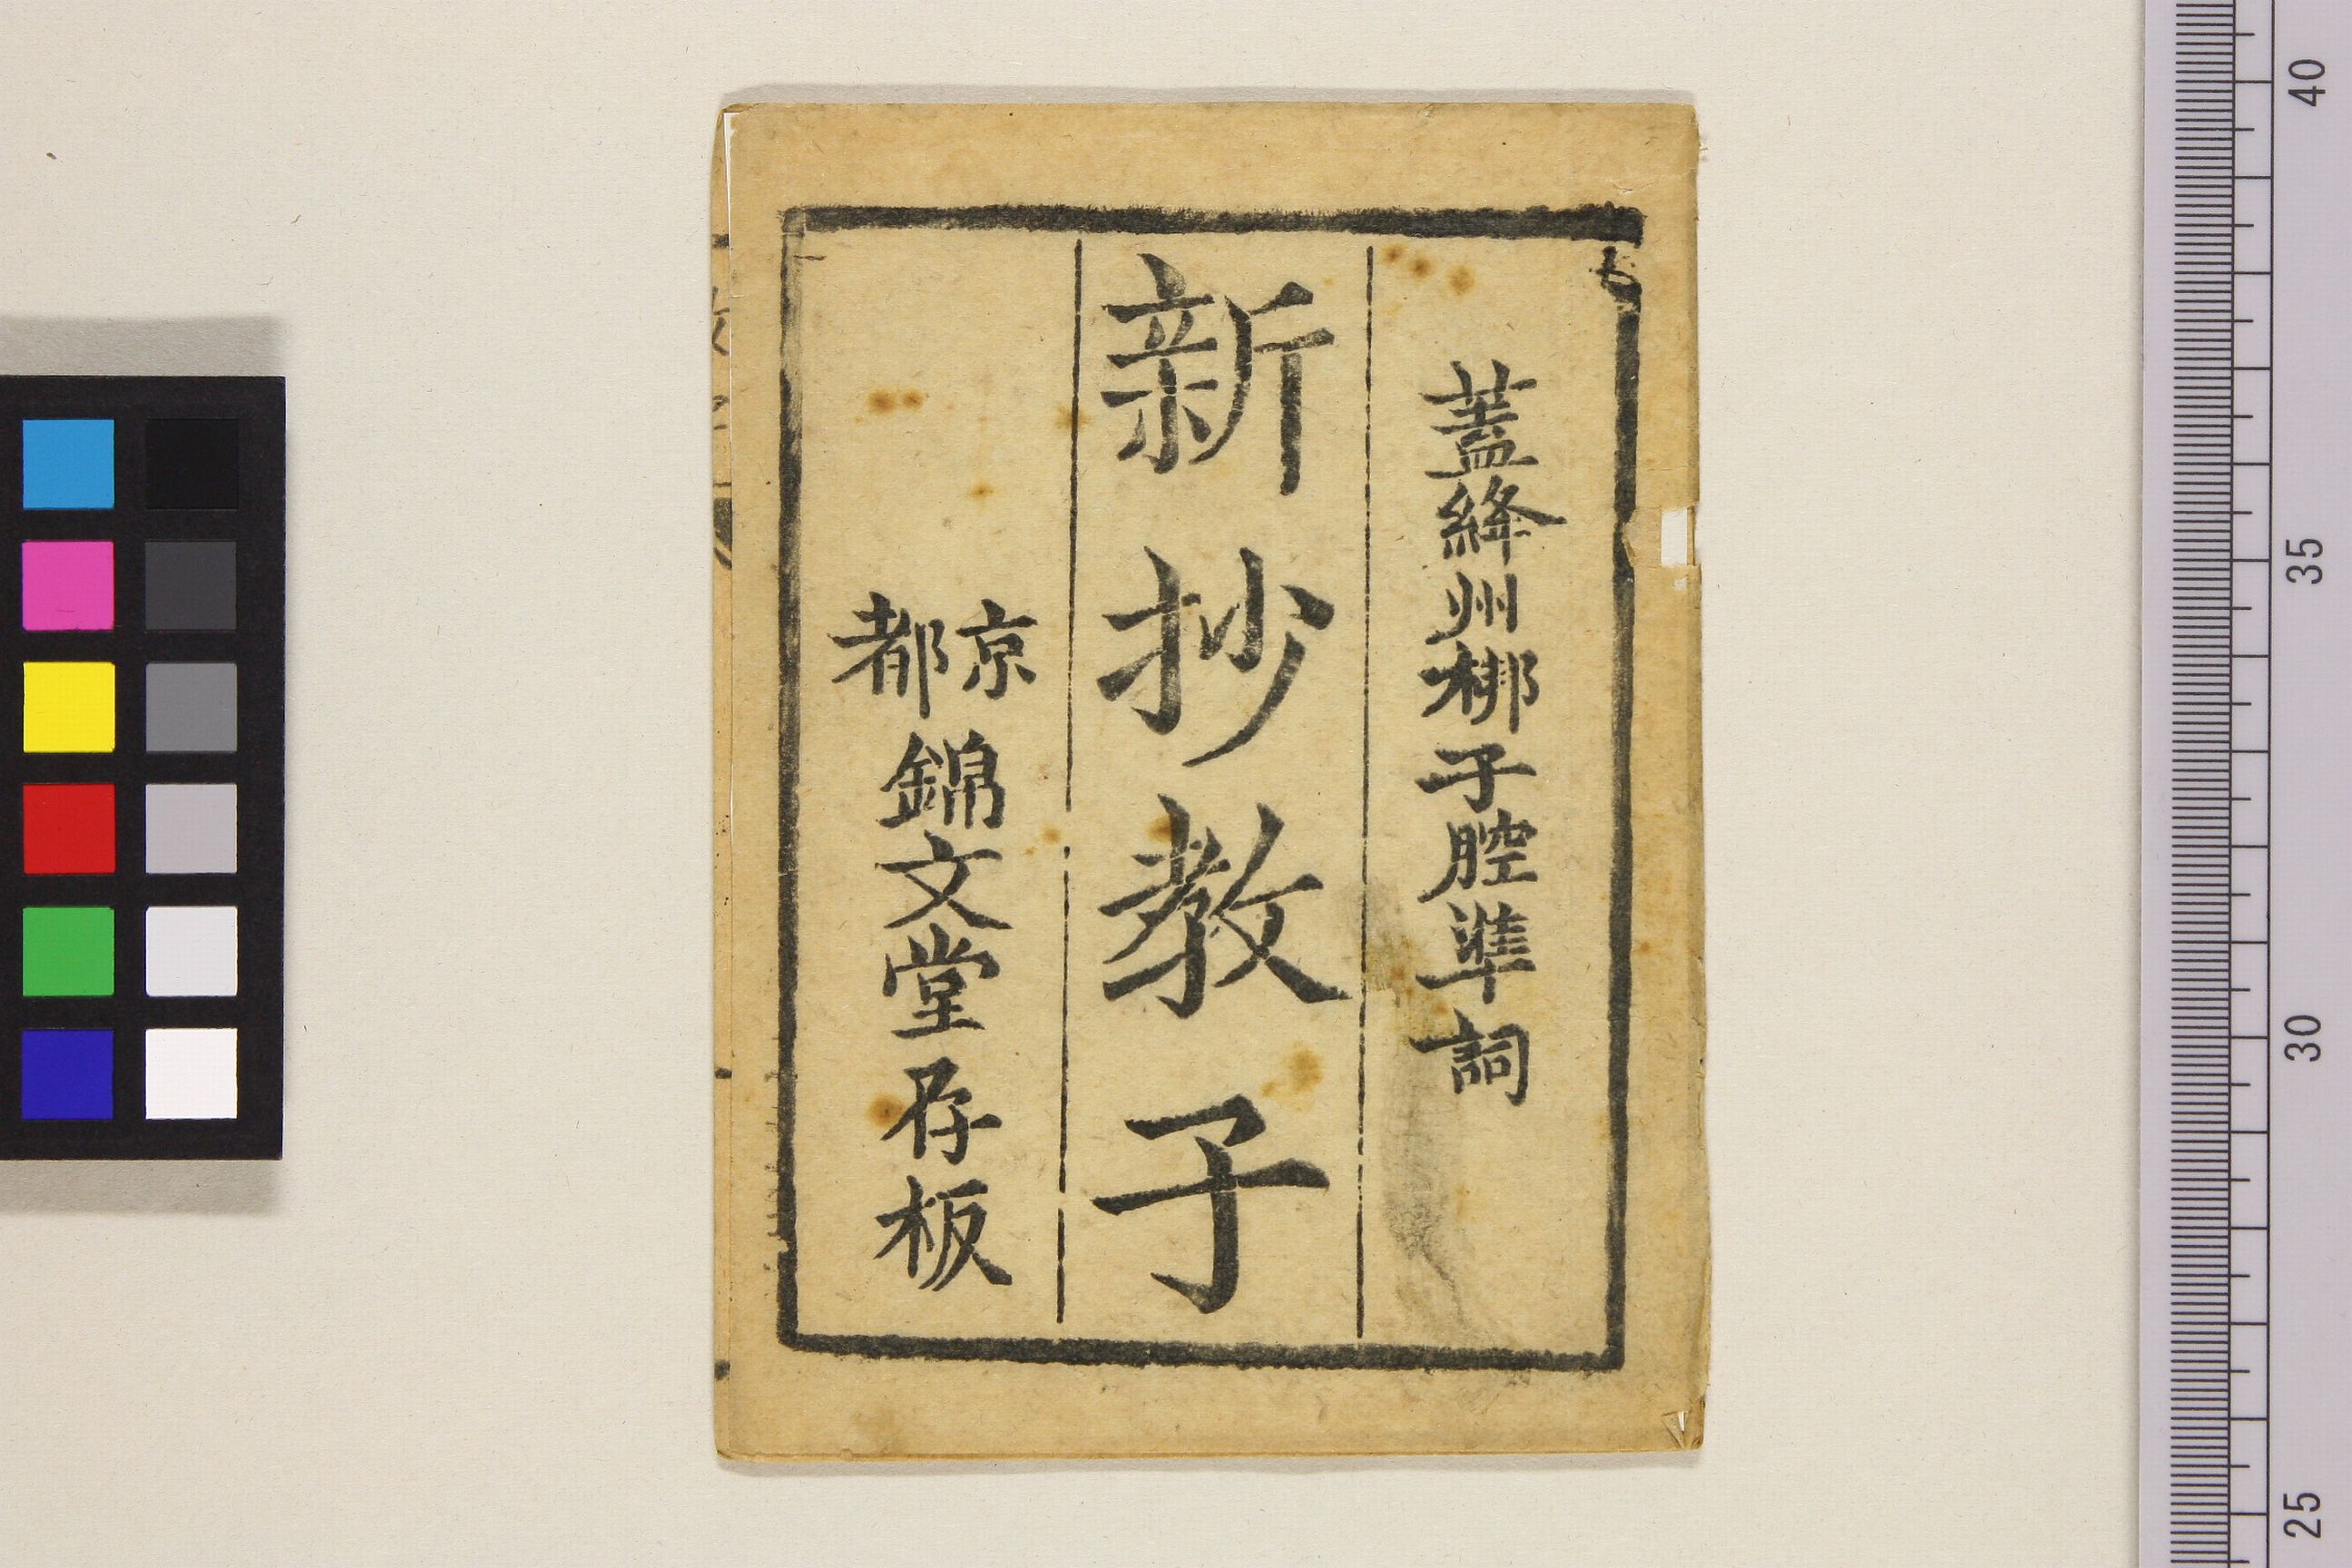 蓋絳州梆子腔準詞
新抄教子
京都錦文堂存板
40
35
30
25